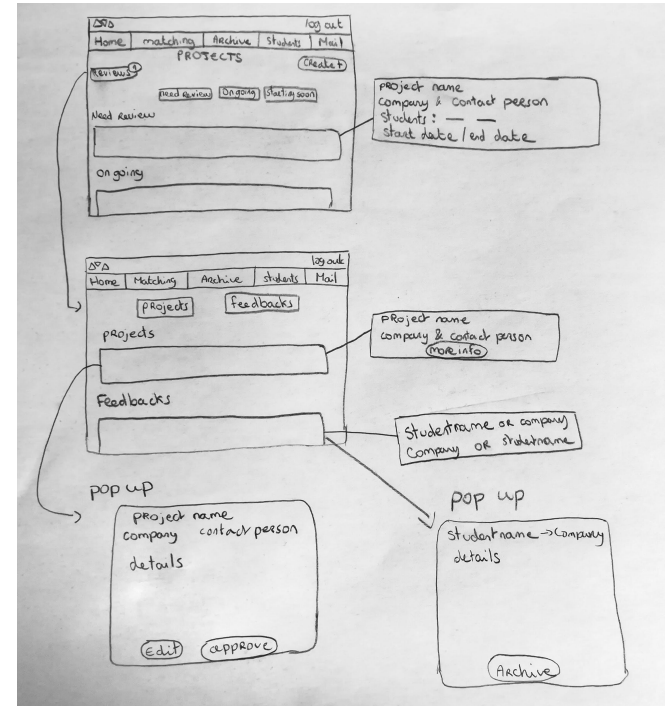 log out
Home matching Archive Students Mail
PROJECTS
Reviews 1
Create +
need Review Ongoing Starting soon
Need Review
PRoject name
company & contact person
Students : — —
Start date / end date
on going
log out
Home Matching Archive students Mail
PRojects Feedbacks
PROjects
PRoject name
company & contact person
more info
Feedbacks
Studentname OR company
Company OR studentname
pop up
PRoject name
company contact person
details
Edit appRove
pop up
Studentname → Company
details
Archive